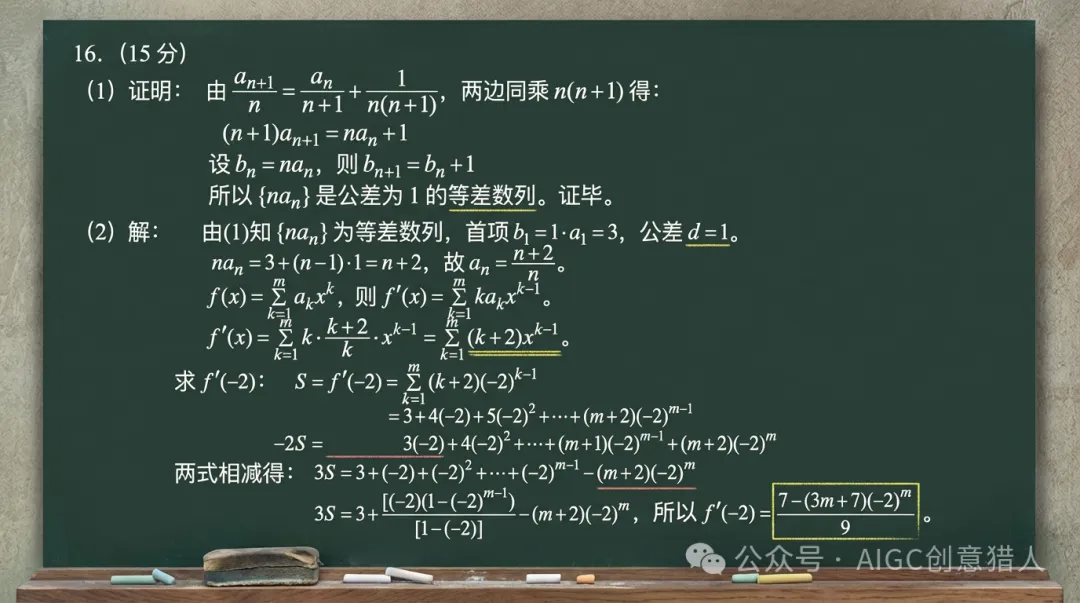 16.（15 分）
（1）证明： 由 \frac{a_{n+1}}{n} = \frac{a_n}{n+1} + \frac{1}{n(n+1)}，两边同乘 n(n+1) 得：
(n+1)a_{n+1} = na_n + 1
设 b_n = na_n，则 b_{n+1} = b_n + 1
所以 {na_n} 是公差为 1 的等差数列。证毕。
（2）解： 由(1)知 {na_n} 为等差数列，首项 b_1 = 1·a_1 = 3，公差 d = 1。
na_n = 3 + (n−1)·1 = n+2，故 a_n = \frac{n+2}{n}。
f(x) = \sum_{k=1}^{m} a_k x^k，则 f′(x) = \sum_{k=1}^{m} ka_k x^{k−1}。
f′(x) = \sum_{k=1}^{m} k·\frac{k+2}{k}·x^{k−1} = \sum_{k=1}^{m} (k+2)x^{k−1}。
求 f′(−2)： S = f′(−2) = \sum_{k=1}^{m} (k+2)(−2)^{k−1}
= 3+4(−2)+5(−2)^2+⋯+(m+2)(−2)^{m−1}
−2S = 3(−2)+4(−2)^2+⋯+(m+1)(−2)^{m−1}+(m+2)(−2)^m
两式相减得： 3S = 3+(−2)+(−2)^2+⋯+(−2)^{m−1}−(m+2)(−2)^m
3S = 3+\frac{[(−2)(1−(−2)^{m−1})}{[1−(−2)]}−(m+2)(−2)^m，所以 f′(−2) = \frac{7−(3m+7)(−2)^m}{9}。
公众号 · AIGC创意猎人